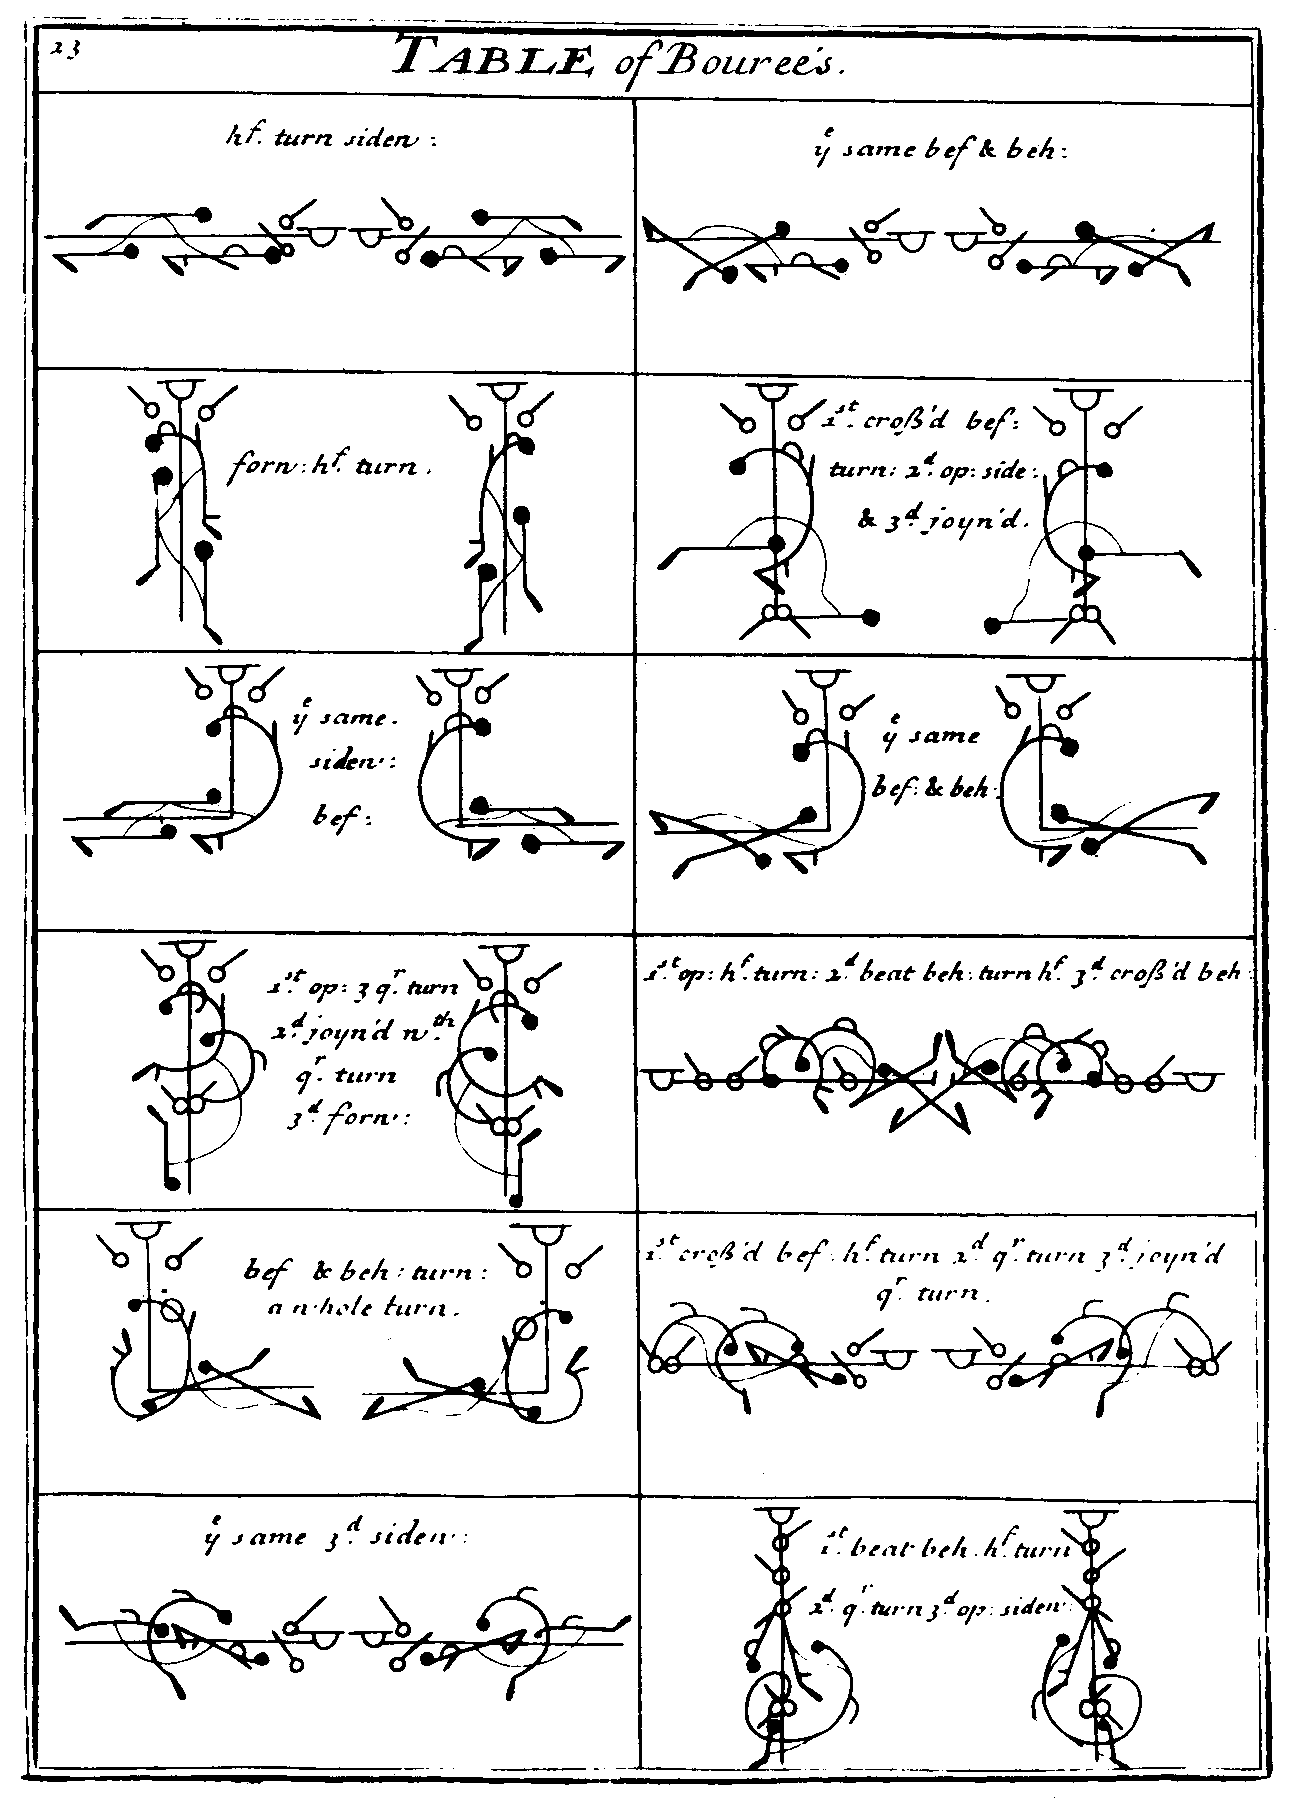 23
TABLE of Bouree's.
hf. turn siden:
ye same bef & beh:
forn: hf. turn.
1st. croß'd bef:
turn: 2d. op: side:
& 3d. joyn'd.
ye same.
siden:
bef:
ye same
bef: & beh:
1st. op: 3 qr. turn
2d. joyn'd wth.
qr. turn
3d. forn:
1st. op: hf. turn: 2d. beat beh: turn hf. 3d. croß'd beh:
bef & beh: turn:
a whole turn.
1st. croß'd bef. hf. turn 2d. qr. turn 3d. joyn'd
qr. turn.
ye same 3d. siden:
1st. beat beh. hf. turn
2d. qr. turn 3d. op: siden: